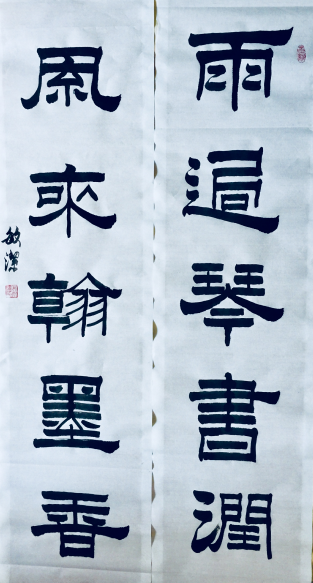 雨過琴書潤
風來翰墨香
敏潔